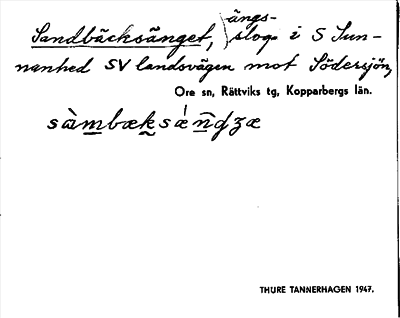 Sandbäcksänget, ängs-
slog i S Sun-
nanhed SV landsvägen mot Södersjön,
Ore sn, Rättviks tg, Kopparbergs län.
sàmbæksǽnʤæ
THURE TANNERHAGEN 1947.